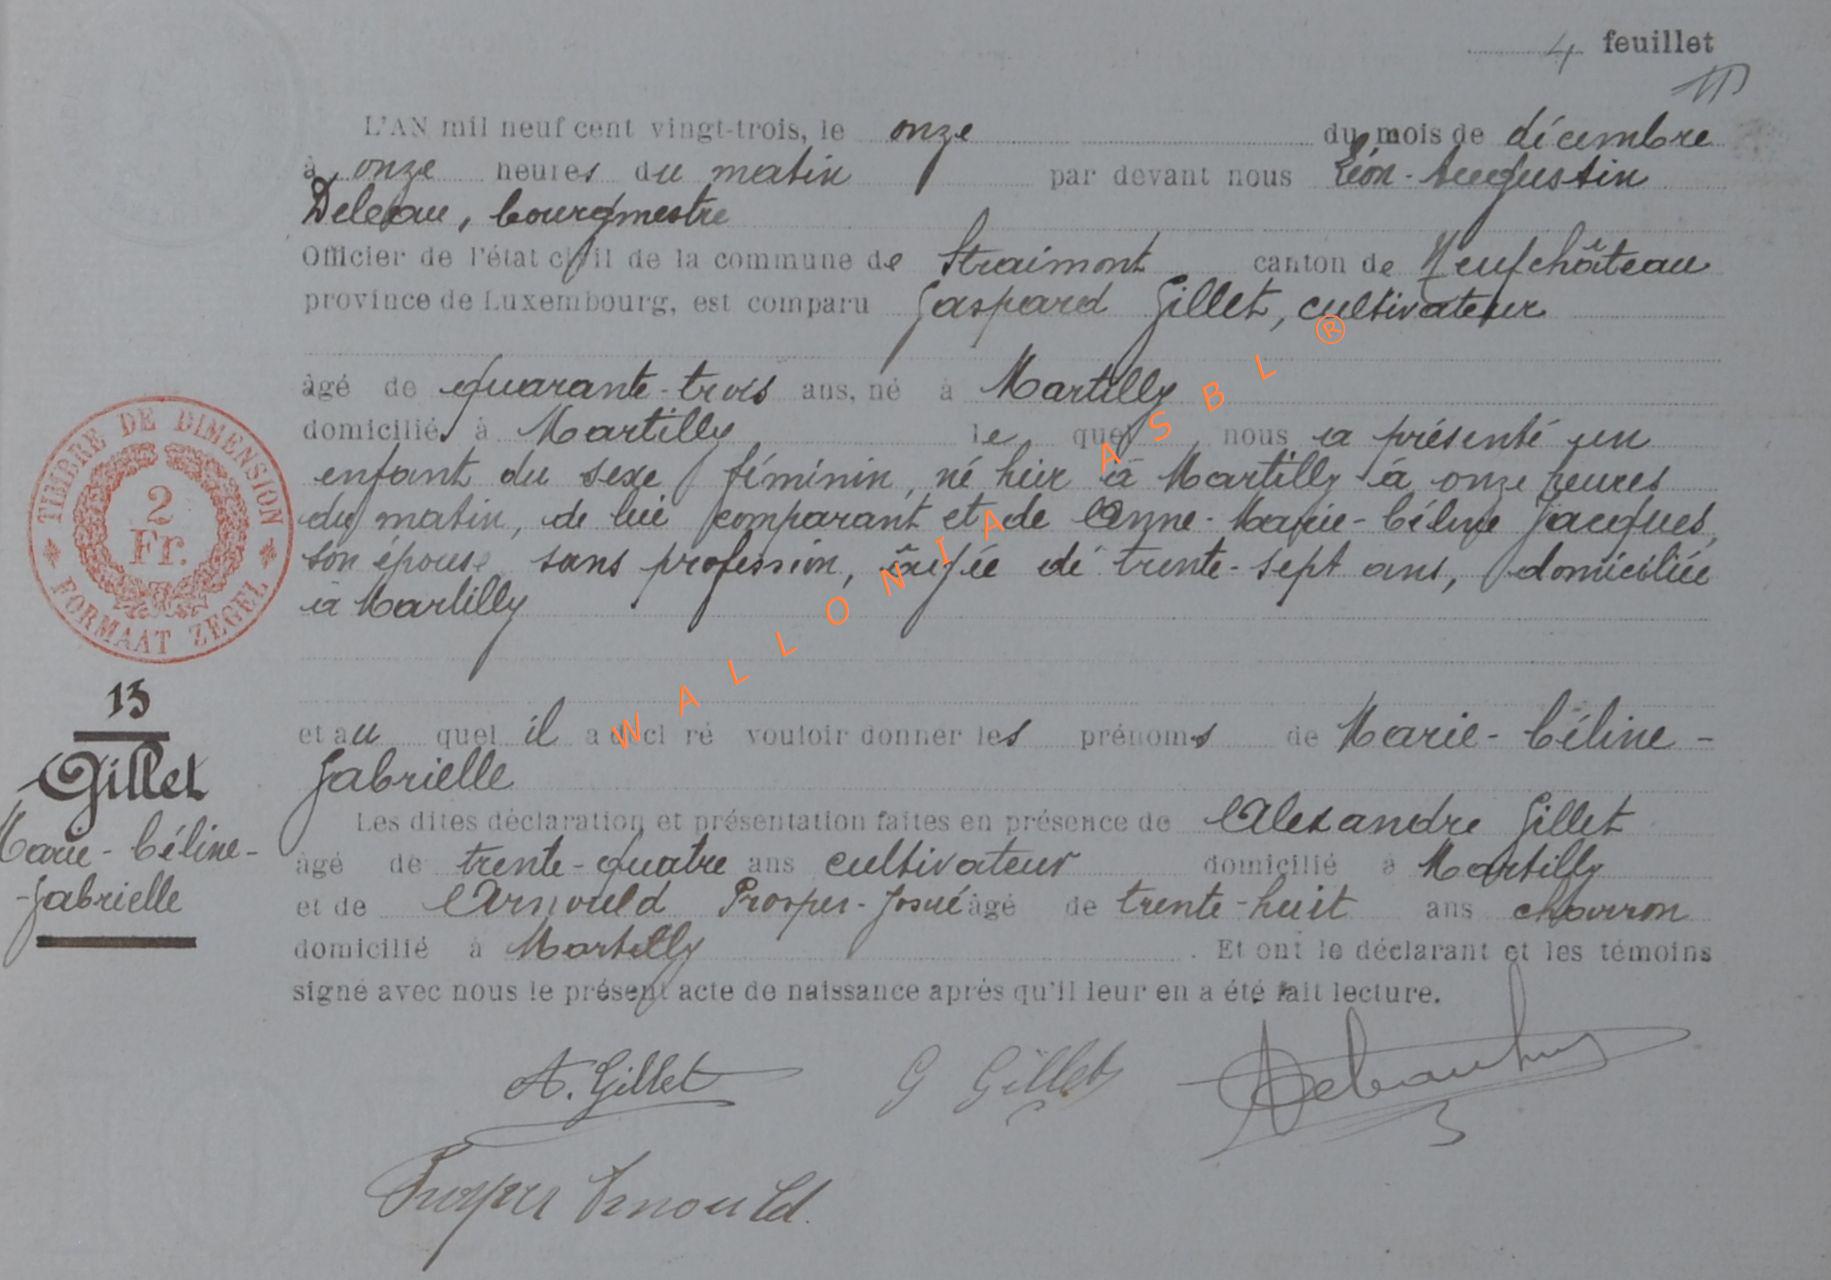 4 feuillet
L'AN mil neuf cent vingt-trois, le onze du mois de décembre
à onze heures du matin par devant nous Léon-Augustin
bourgmestre
Officier de l'état civil de la commune de Straimont canton de Neufchâteau
province de Luxembourg, est comparu Gaspard Gillet, cultivateur
âgé de quarante-trois ans, né à Martilly
domicilié à Martilly le quel nous a présenté un
enfant du sexe féminin, né hier à Martilly à onze heures
du matin, de lui comparant et de Anne-Marie-Céline Jacques,
son épouse, sans profession, âgée de trente-sept ans, domiciliée
à Martilly
et au quel il a décl ré vouloir donner les prénoms de Marie-Céline-
Gabrielle
Les dites déclaration et présentation faites en présence de Alexandre Gillet
âgé de trente-quatre ans cultivateur domicilié à Martilly
et de Arnould Prosper-Josué âgé de trente-huit ans charron
domicilié à Martilly. Et ont le déclarant et les témoins
signé avec nous le présent acte de naissance après qu'il leur en a été fait lecture.
A. Gillet G Gillet
Prosper Arnould.
TIMBRE DE DIMENSION
2
Fr.
FORMAAT ZEGEL
13
Gillet
Marie-Céline-
-Gabrielle
WALLONIA ASBL ®